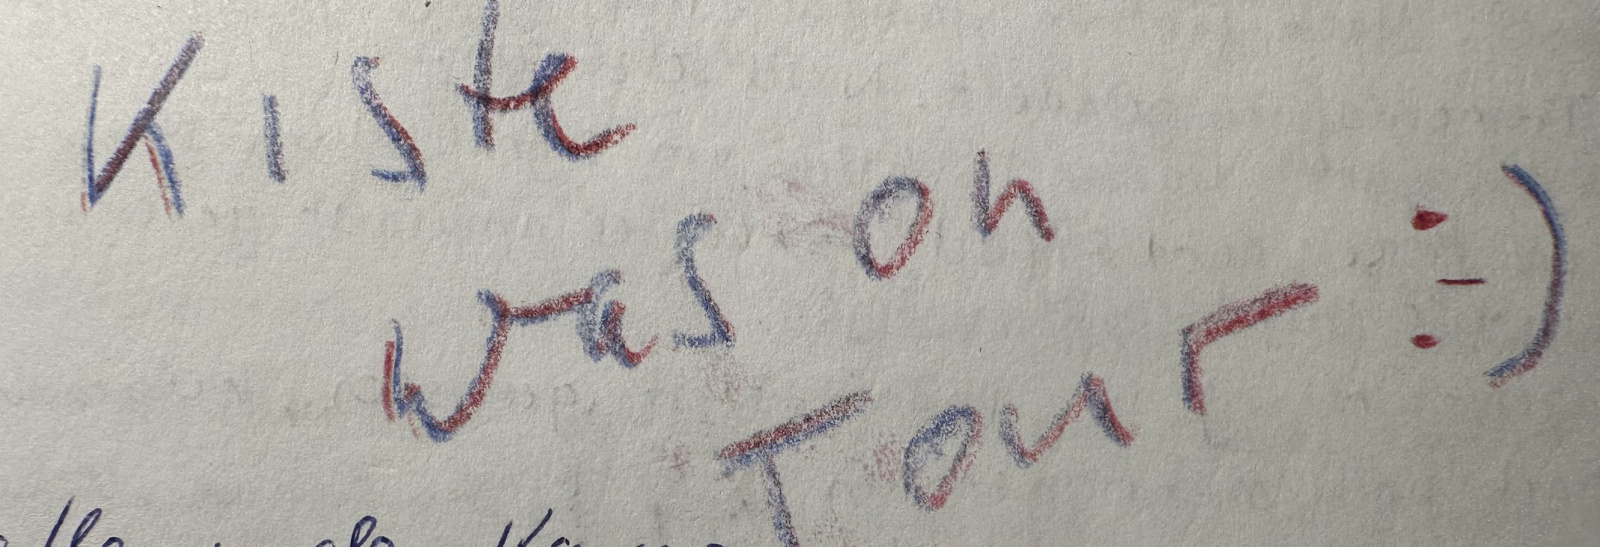 Kiste
was on
Tour :-)